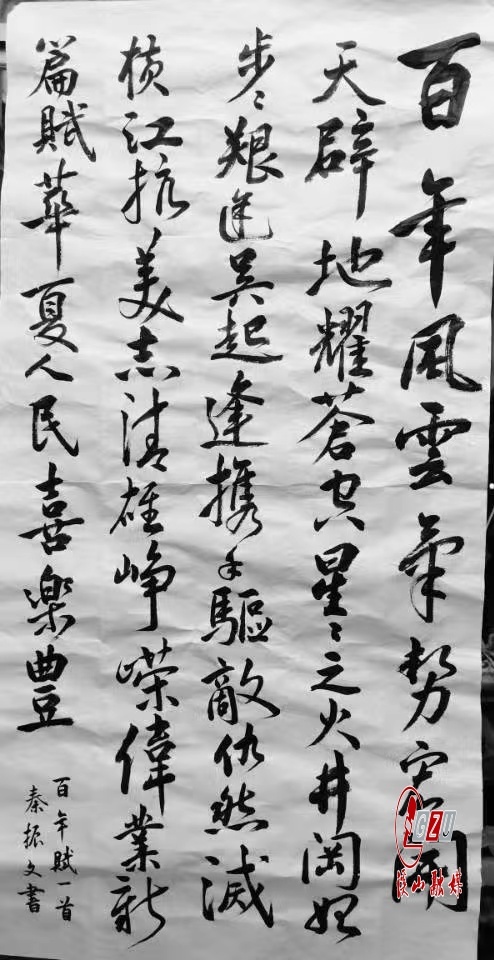 百年風雲氣勢宏開
天辟地耀蒼空星〻之火井岡始
步〻艱途吳起逢携手驅敵仇然滅
横江抗美志清雄峥嵘偉業新
篇賦華夏人民喜樂豊
百年賦一首
秦振文書
GZU
山融媒